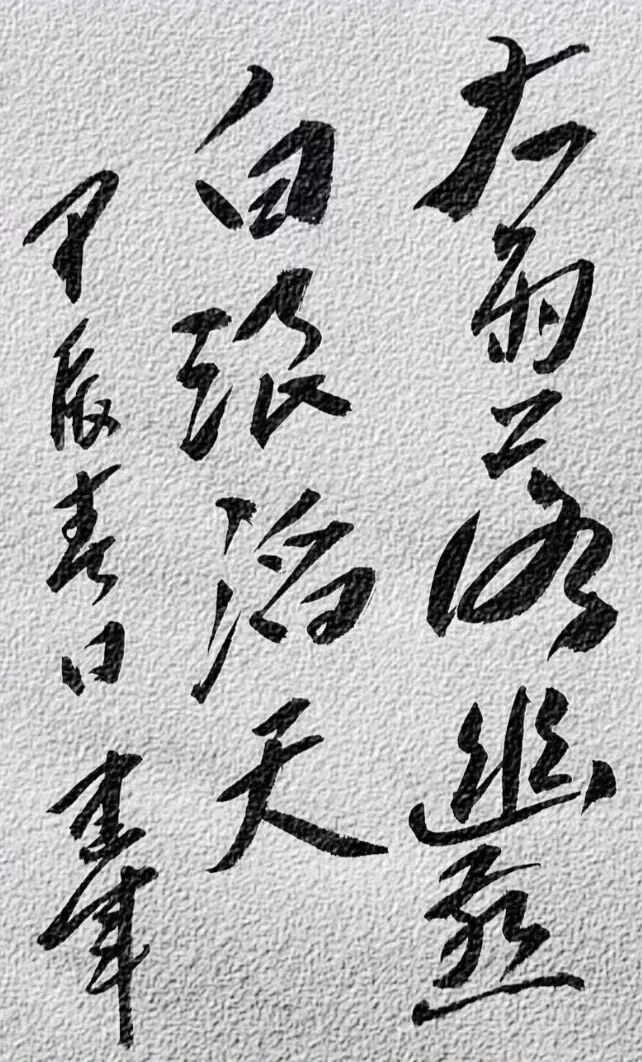 大雨落幽燕
白浪滔天
甲辰春日 建军